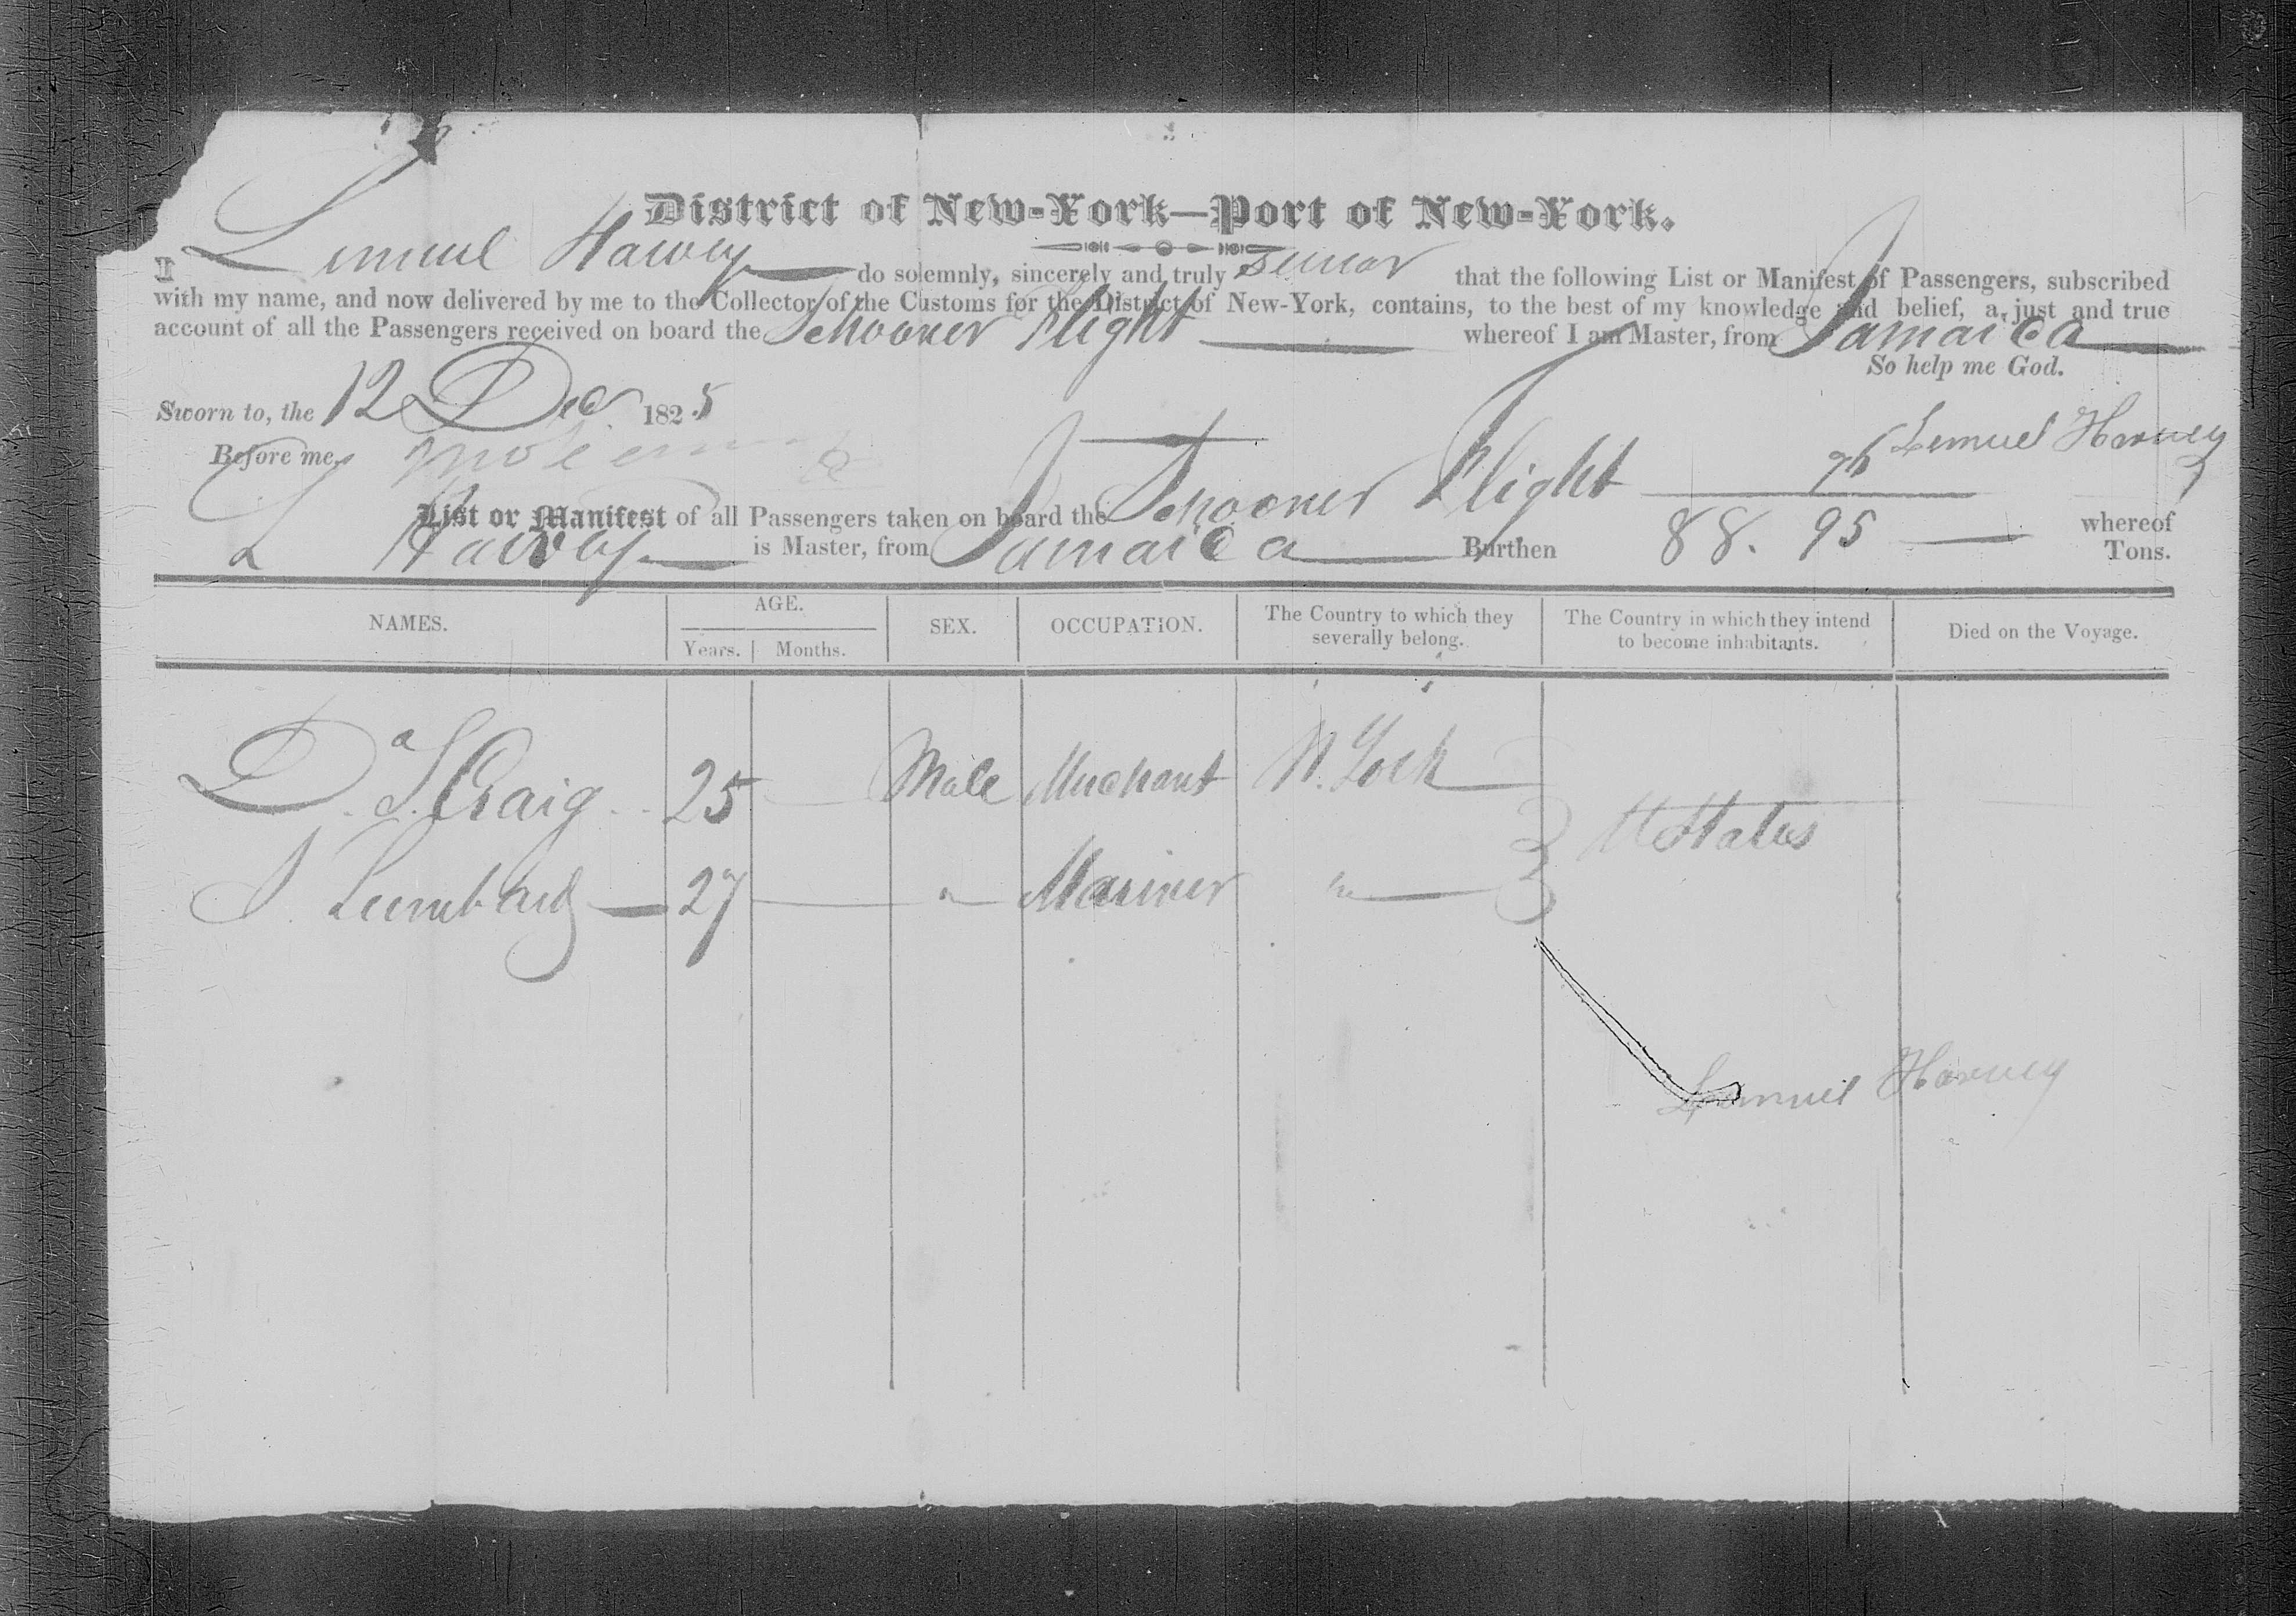 District of New-York—Port of New-York.
I Lemuel Harvey do solemnly, sincerely and truly swear that the following List or Manifest of Passengers, subscribed
with my name, and now delivered by me to the Collector of the Customs for the District of New-York, contains, to the best of my knowledge and belief, a just and true
account of all the Passengers received on board the Schooner Flight whereof I am Master, from Jamaica
So help me God.
Sworn to, the 12 Dec 1825
Lemuel Harvey
Before me,
List or Manifest of all Passengers taken on board the Schooner Flight whereof
L Harvey is Master, from Jamaica Burthen 88. 95 Tons.
NAMES. AGE. SEX. OCCUPATION. The Country to which they severally belong. The Country in which they intend to become inhabitants. Died on the Voyage.
Years. Months.
D. S. Craig 25 Male Merchant N. York
U States
J. Lumbard 27 " Mariner "
Lemuel Harvey